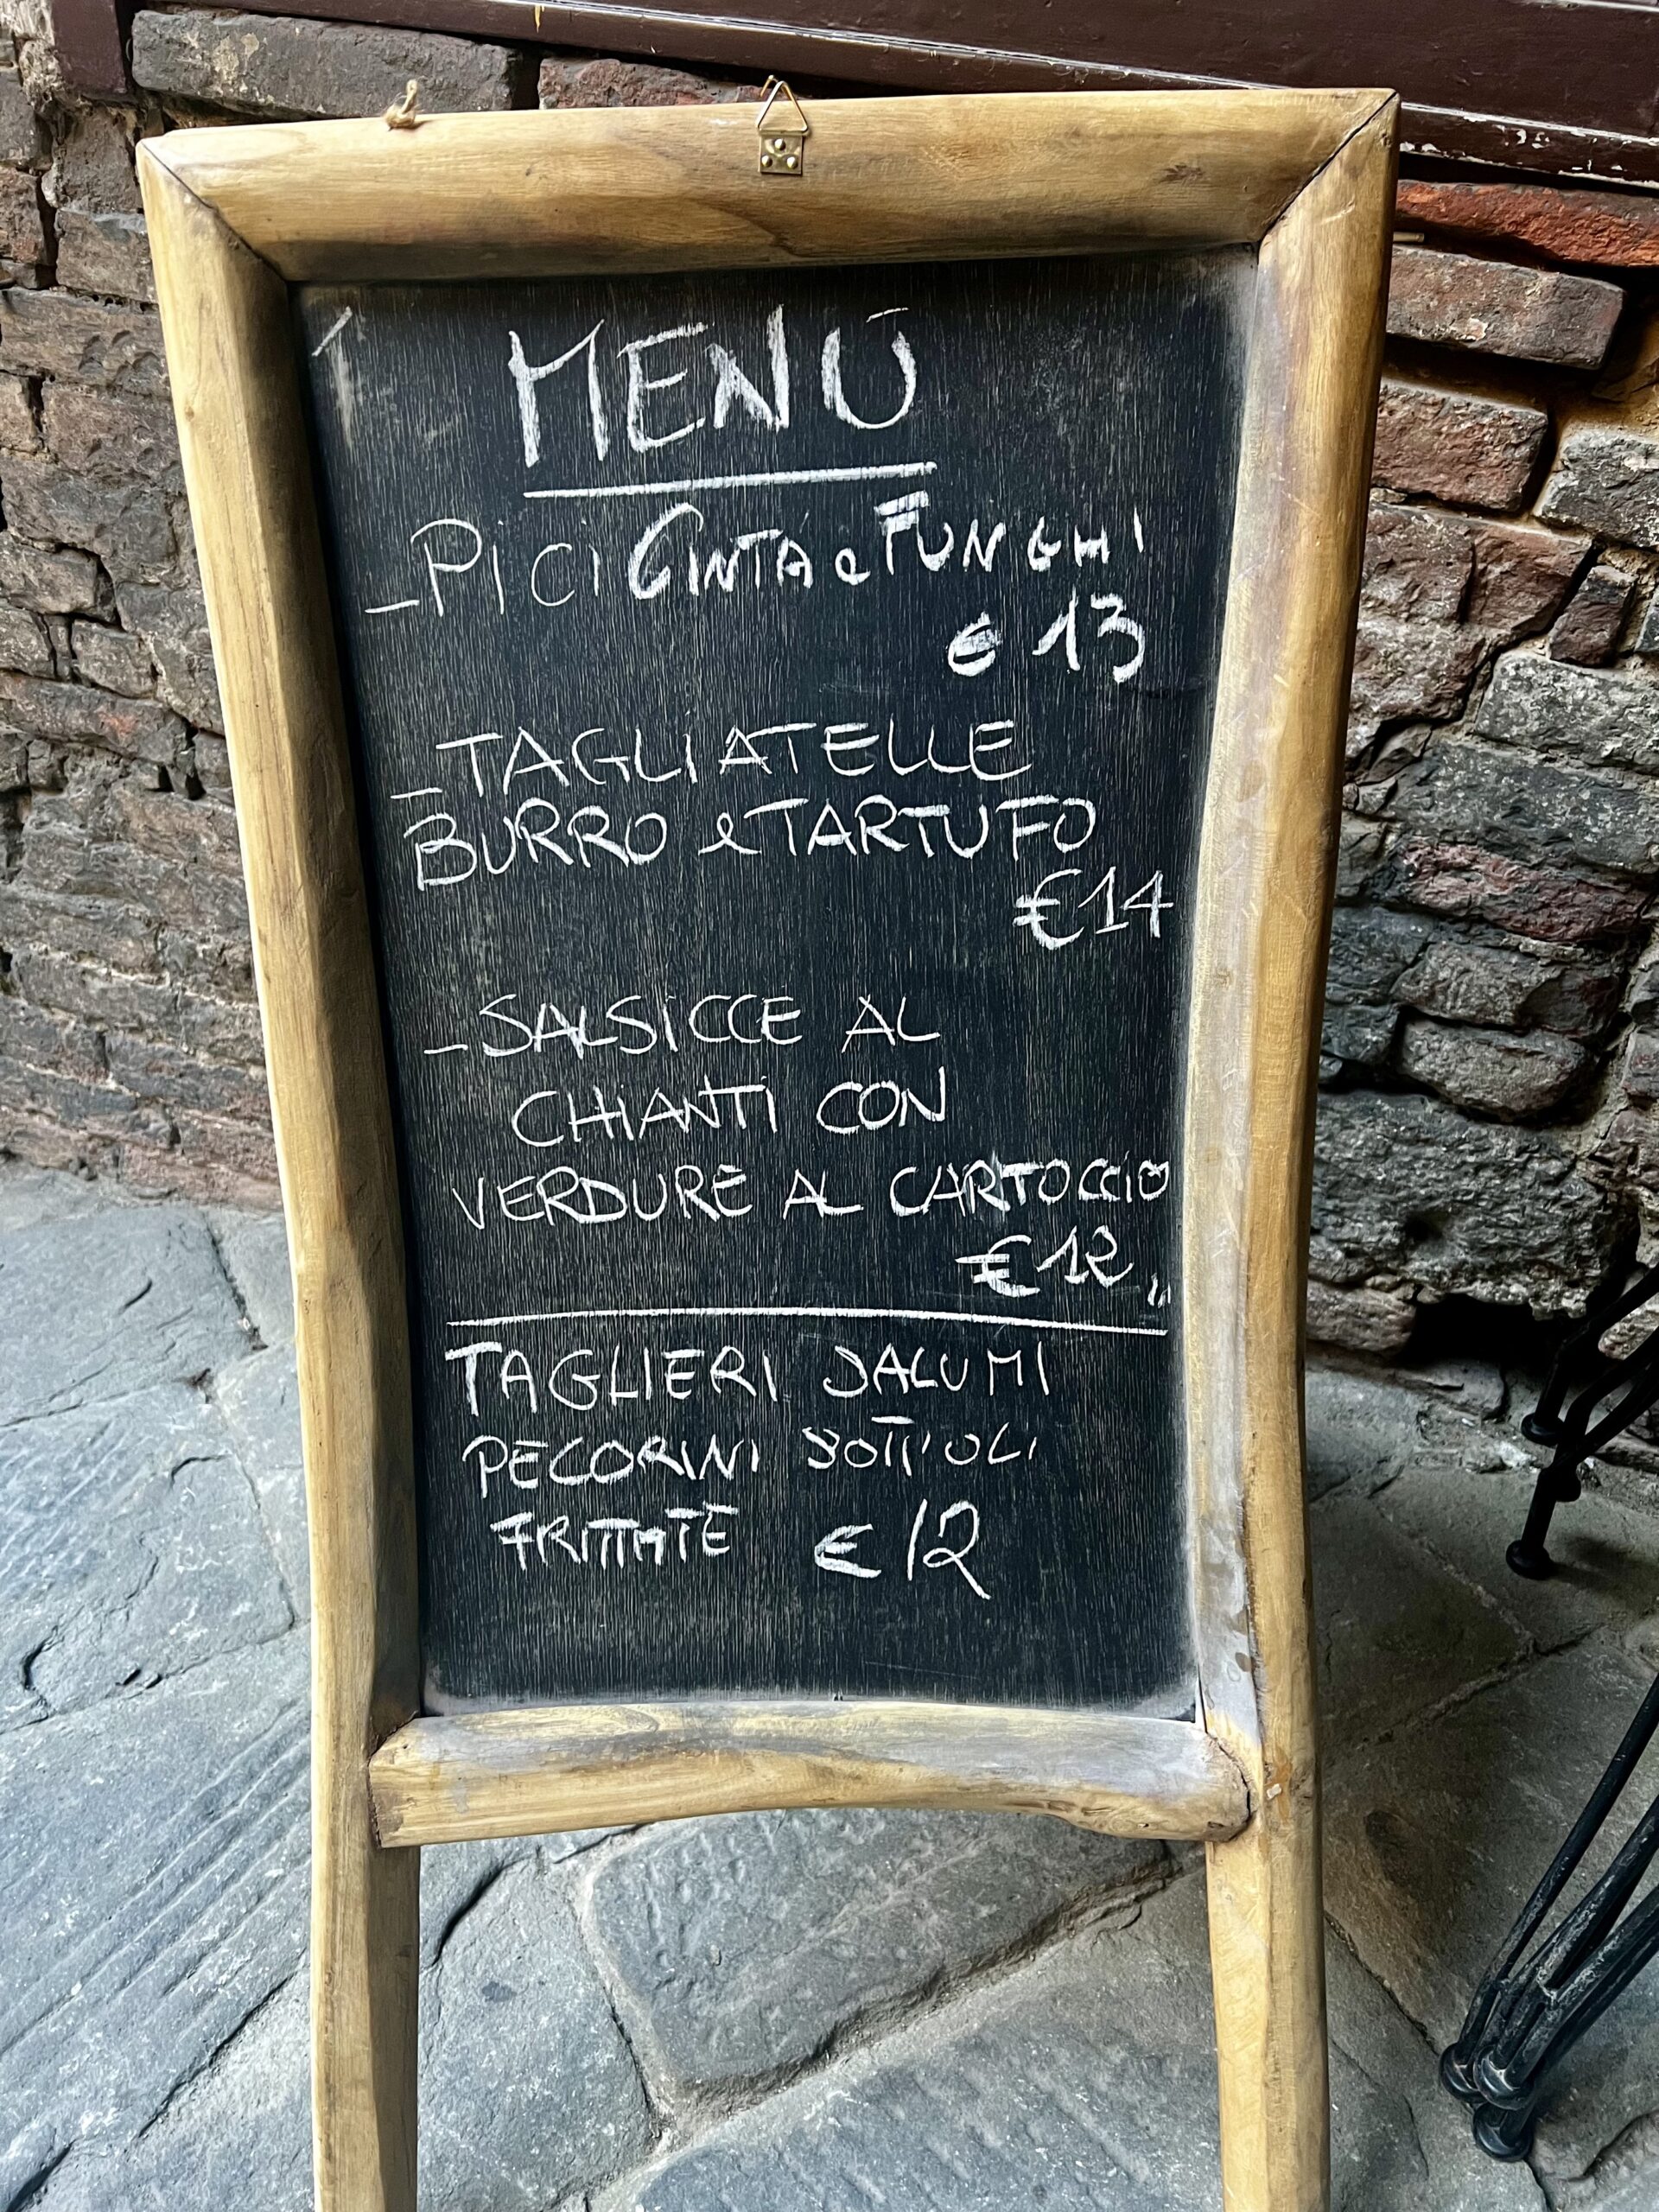 MENÙ
-PICI CINTA e FUNGHI
€ 13
-TAGLIATELLE
BURRO e TARTUFO
€14
-SALSICCE AL
CHIANTI CON
VERDURE AL CARTOCCIO
€12,,
TAGLIERI SALUMI
PECORINI SOTT'OLI
FRITTATE € 12